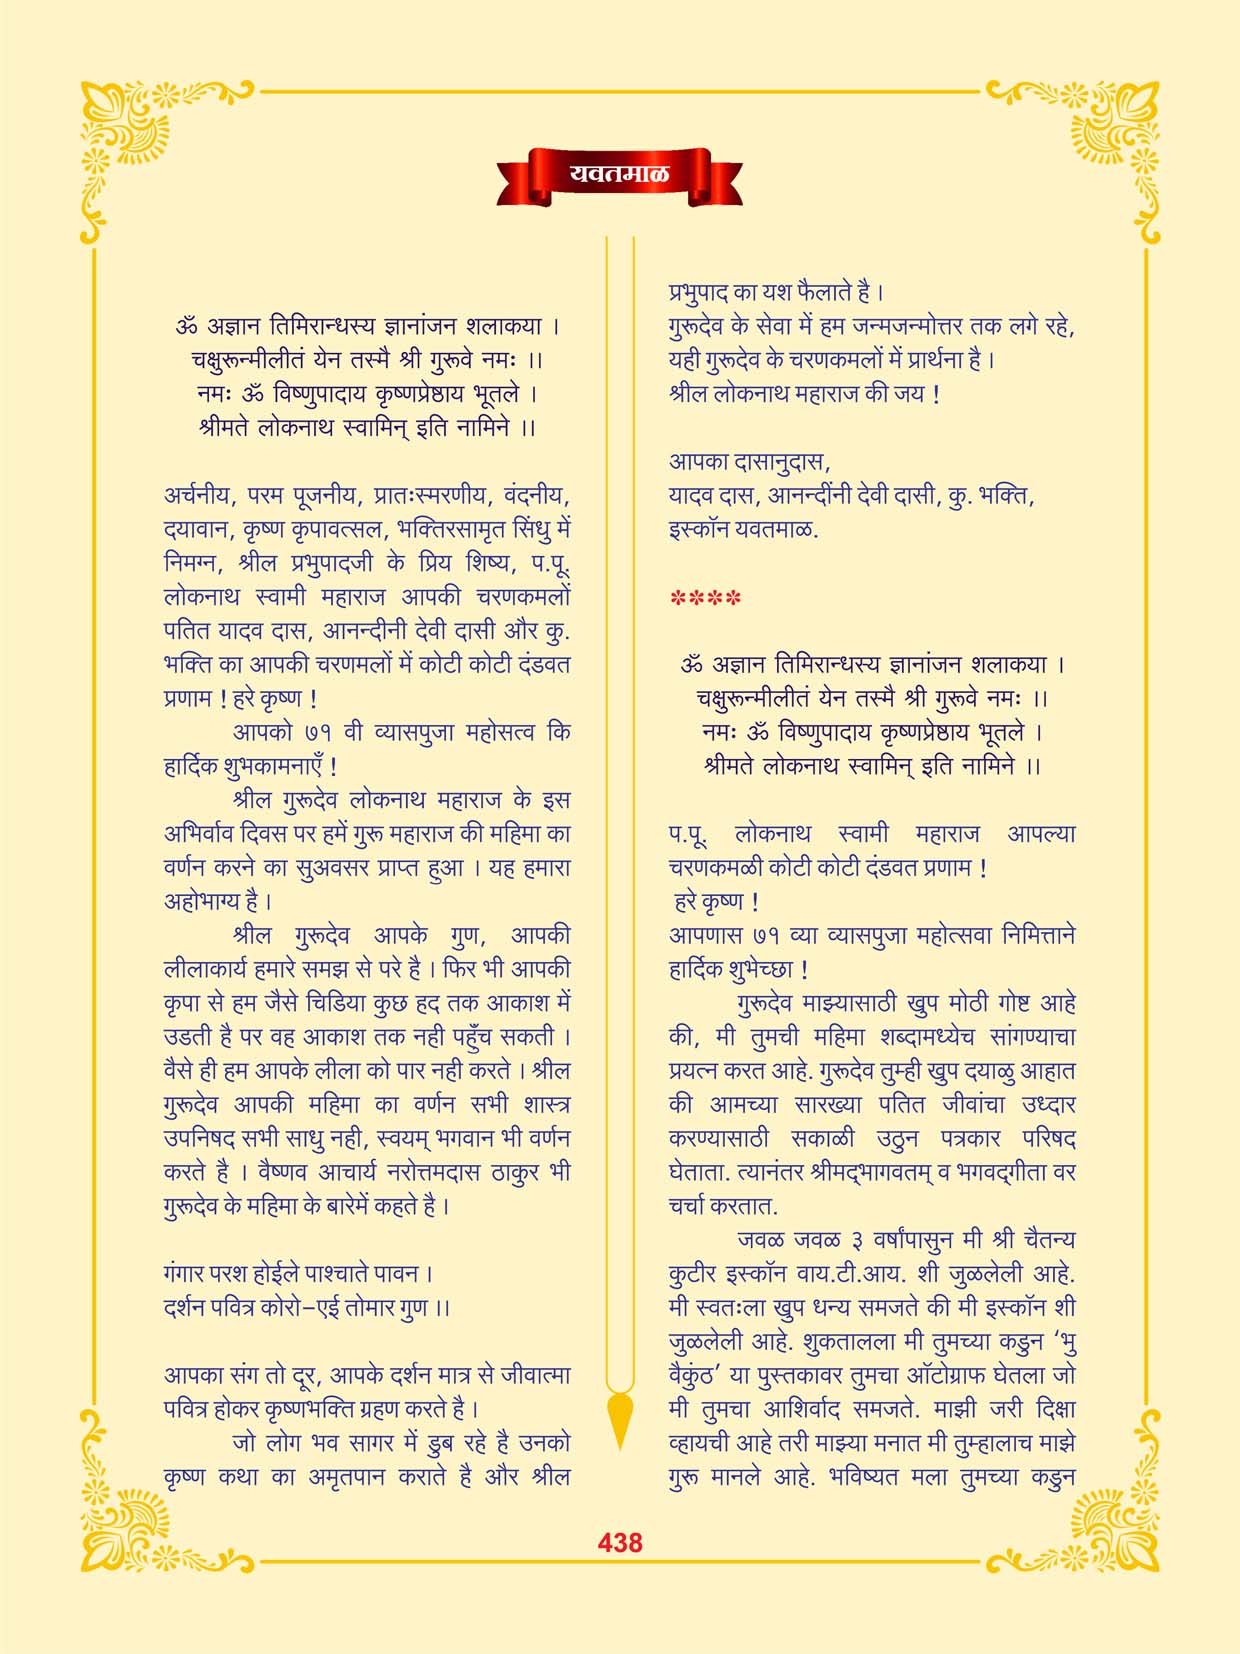 यवतमाळ
ॐ अज्ञान तिमिरान्धस्य ज्ञानांजन शलाकया ।
चक्षुरून्मीलीतं येन तस्मै श्री गुरूवे नमः ।।
नमः ॐ विष्णुपादाय कृष्णप्रेष्ठाय भूतले ।
श्रीमते लोकनाथ स्वामिन् इति नामिने ।।
अर्चनीय, परम पूजनीय, प्रातःस्मरणीय, वंदनीय,
दयावान, कृष्ण कृपावत्सल, भक्तिरसामृत सिंधु में
निमग्न, श्रील प्रभुपादजी के प्रिय शिष्य, प.पू.
लोकनाथ स्वामी महाराज आपकी चरणकमलों
पतित यादव दास, आनन्दीनी देवी दासी और कु.
भक्ति का आपकी चरणमलों में कोटी कोटी दंडवत
प्रणाम ! हरे कृष्ण !
आपको ७१ वी व्यासपुजा महोसत्व कि
हार्दिक शुभकामनाएँ !
श्रील गुरूदेव लोकनाथ महाराज के इस
अभिर्वाव दिवस पर हमें गुरू महाराज की महिमा का
वर्णन करने का सुअवसर प्राप्त हुआ । यह हमारा
अहोभाग्य है ।
श्रील गुरूदेव आपके गुण, आपकी
लीलाकार्य हमारे समझ से परे है । फिर भी आपकी
कृपा से हम जैसे चिडिया कुछ हद तक आकाश में
उडती है पर वह आकाश तक नही पहुँच सकती ।
वैसे ही हम आपके लीला को पार नही करते । श्रील
गुरूदेव आपकी महिमा का वर्णन सभी शास्त्र
उपनिषद सभी साधु नही, स्वयम् भगवान भी वर्णन
करते है । वैष्णव आचार्य नरोत्तमदास ठाकुर भी
गुरूदेव के महिमा के बारेमें कहते है ।
गंगार परश होईले पाश्चाते पावन ।
दर्शन पवित्र कोरो–एई तोमार गुण ।।
आपका संग तो दूर, आपके दर्शन मात्र से जीवात्मा
पवित्र होकर कृष्णभक्ति ग्रहण करते है ।
जो लोग भव सागर में डुब रहे है उनको
कृष्ण कथा का अमृतपान कराते है और श्रील
प्रभुपाद का यश फैलाते है ।
गुरूदेव के सेवा में हम जन्मजन्मोत्तर तक लगे रहे,
यही गुरूदेव के चरणकमलों में प्रार्थना है ।
श्रील लोकनाथ महाराज की जय !
आपका दासानुदास,
यादव दास, आनन्दींनी देवी दासी, कु. भक्ति,
इस्कॉन यवतमाळ.
****
ॐ अज्ञान तिमिरान्धस्य ज्ञानांजन शलाकया ।
चक्षुरून्मीलीतं येन तस्मै श्री गुरूवे नमः ।।
नमः ॐ विष्णुपादाय कृष्णप्रेष्ठाय भूतले ।
श्रीमते लोकनाथ स्वामिन् इति नामिने ।।
प.पू. लोकनाथ स्वामी महाराज आपल्या
चरणकमळी कोटी कोटी दंडवत प्रणाम !
हरे कृष्ण !
आपणास ७१ व्या व्यासपुजा महोत्सवा निमित्ताने
हार्दिक शुभेच्छा !
गुरूदेव माझ्यासाठी खुप मोठी गोष्ट आहे
की, मी तुमची महिमा शब्दामध्येच सांगण्याचा
प्रयत्न करत आहे. गुरूदेव तुम्ही खुप दयाळु आहात
की आमच्या सारख्या पतित जीवांचा उध्दार
करण्यासाठी सकाळी उठुन पत्रकार परिषद
घेताता. त्यानंतर श्रीमद्‌भागवतम् व भगवद्‌गीता वर
चर्चा करतात.
जवळ जवळ ३ वर्षांपासुन मी श्री चैतन्य
कुटीर इस्कॉन वाय.टी.आय. शी जुळलेली आहे.
मी स्वतःला खुप धन्य समजते की मी इस्कॉन शी
जुळलेली आहे. शुकतालला मी तुमच्या कडुन ‘भु
वैकुंठ’ या पुस्तकावर तुमचा ऑटोग्राफ घेतला जो
मी तुमचा आशिर्वाद समजते. माझी जरी दिक्षा
व्हायची आहे तरी माझ्या मनात मी तुम्हालाच माझे
गुरू मानले आहे. भविष्यत मला तुमच्या कडुन
438